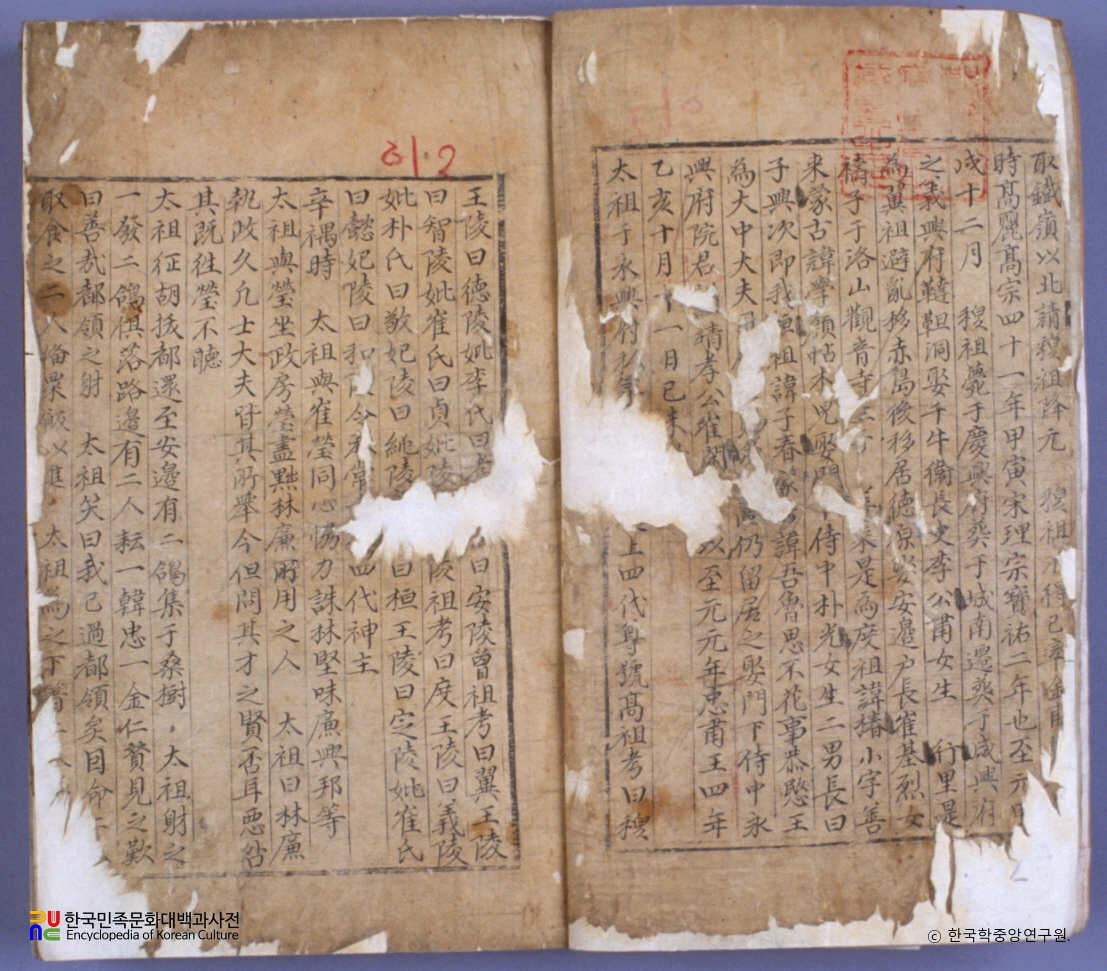 取鐵嶺以北請穆祖降元 穆祖不得已率金甫
時髙麗髙宗四十一年甲寅宋理宗寶祐二年也至元
戌十二月 穆祖薨于慶興府葬于城南遷葬于咸興府
之義興府韃靼洞娶千牛衛長史李公肅女生 行里是
為翼祖避亂移赤島後移居德源娶安邊戶長崔基烈女
禱子于洛山觀音寺 来是為度祖諱椿小字善
来蒙古諱孛顔帖木兒娶門 侍中朴光女生二男長曰
子興次即我桓祖諱子春蒙 諱吾魯思不花事恭愍王
為大中大夫 仍留居之娶門下侍中永
興府院君 請孝公崔閑 以至元元年忠肅王四年
乙亥十月十一日己未
太祖于永興府 上四代尊號髙祖考曰穆
王陵曰德陵妣李氏曰孝 曰安陵曾祖考曰翼王陵
曰智陵妣崔氏曰貞妣陵 陵祖考曰度王陵曰義陵
妣朴氏曰敬妃陵曰純陵 曰桓王陵曰定陵妣崔氏
曰懿妃陵曰和陵令 常 四代神主
辛禑時 太祖與崔瑩同心恊力誅林堅味廉興邦等
太祖與瑩坐政房瑩盡黜林廉所用之人 太祖曰林廉
執政久凢士大夫皆其所舉今但問其才之賢否耳惡咎
其既徃瑩不聽
太祖征胡拔都還至安邊有二鴿集于桑樹 太祖射之
一發二鴿俱落路邊有二人耘一韓忠一金仁贊見之歎
曰善㢤都領之射 太祖笑曰我已過都領矣因命二
取食之二人備粟飯以進 太祖為之下箸
31.2
한국민족문화대백과사전
Encyclopedia of Korean Culture
© 한국학중앙연구원.